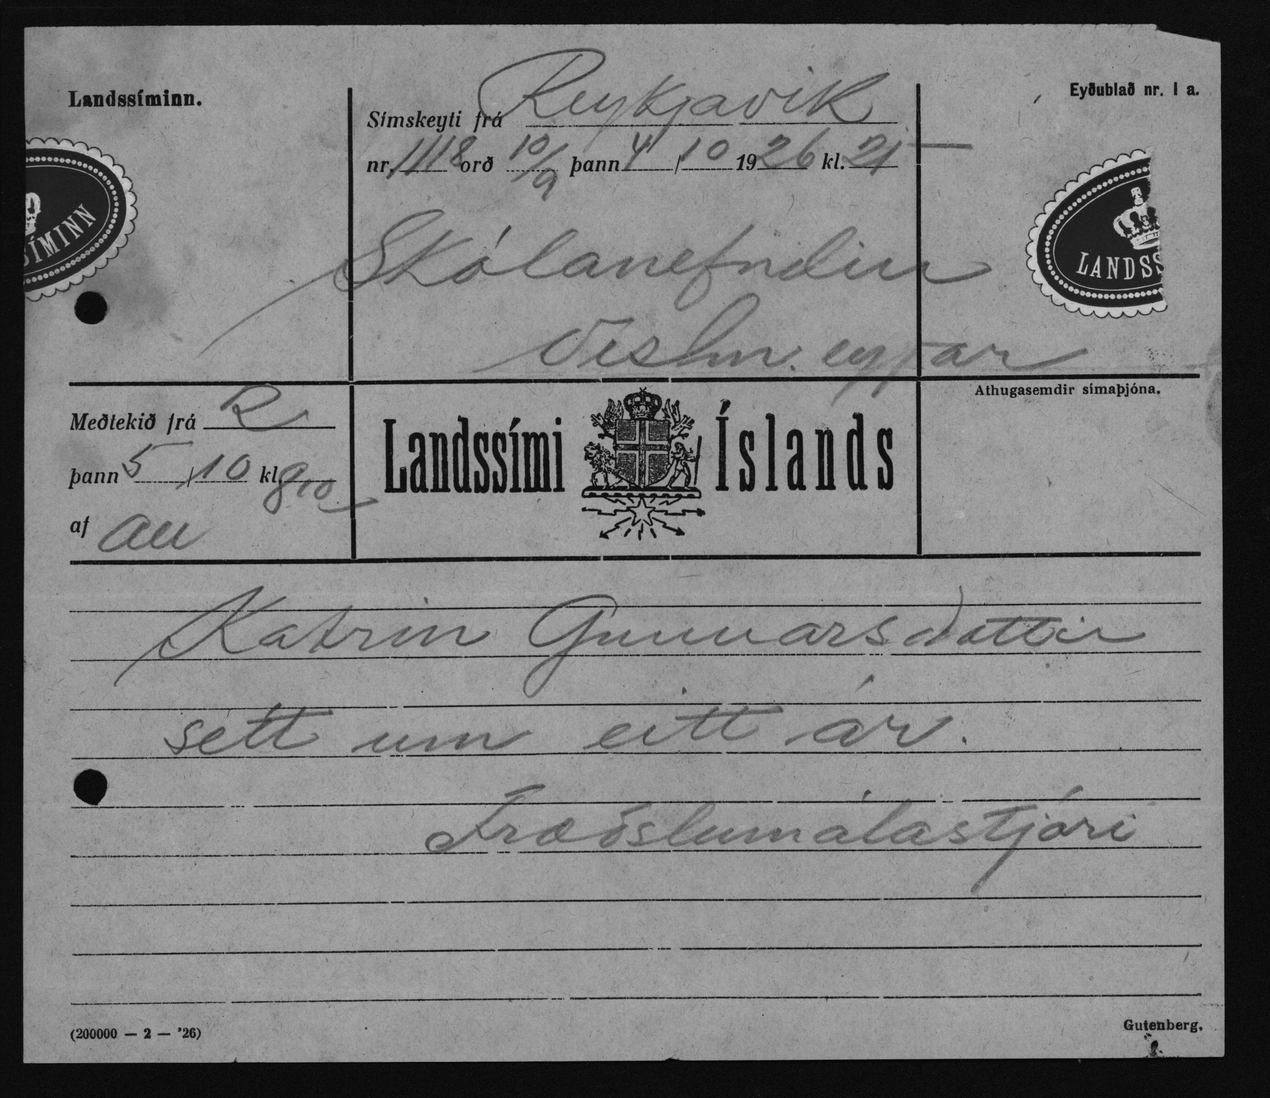 Landssíminn.
Eyðublað nr. 1 a.
Símskeyti frá Reykjavík
nr. 1118 orð 10/9 þann 4/10 1926 kl. 21
SÍMINN
LANDSS
Skólanefndin
Vestm. eyjar
Meðtekið frá R
þann 5/10 kl. 8 10
af au
Landssími Íslands
Athugasemdir símaþjóna.
Katrin Gunnarsdottir
sett um eitt ár.
Fræðslumálastjóri
(200000 — 2 — '26)
Gutenberg.